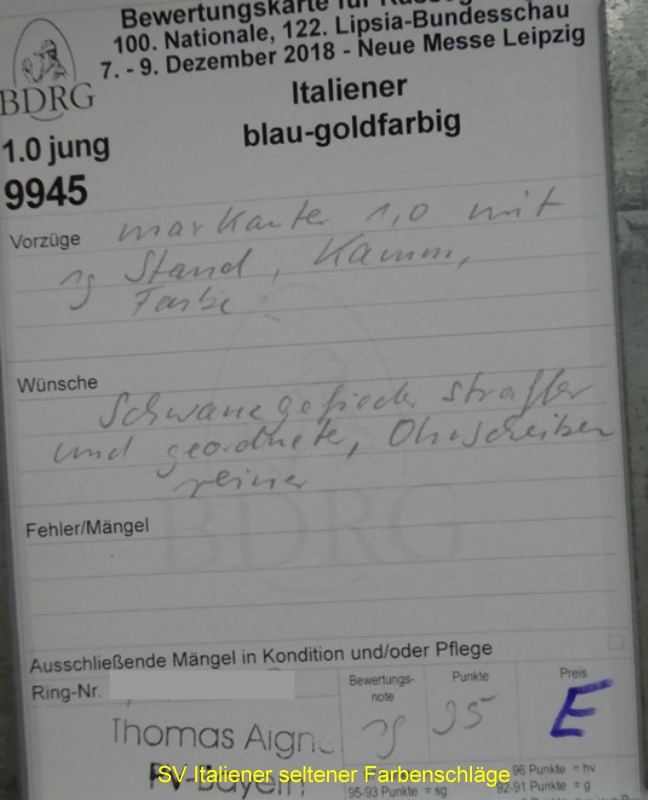 Bewertungskarte für
100. Nationale, 122. Lipsia-Bundesschau
7. - 9. Dezember 2018 - Neue Messe Leipzig
BDRG
Italiener
1.0 jung
blau-goldfarbig
9945
Vorzüge markanter 1,0 mit
sg Stand, Kamm,
Farbe
Wünsche
Schwanzgefieder straffer
und geordneter, Ohrscheiben
reiner
BDRG
Fehler/Mängel
Ausschließende Mängel in Kondition und/oder Pflege
Ring-Nr.
Bewertungs-
note
Punkte
Preis
sg 95 E
Thomas
PV-Bayern
SV Italiener seltener Farbenschläge
96 Punkte = hv
95-93 Punkte = sg
92-91 Punkte = g